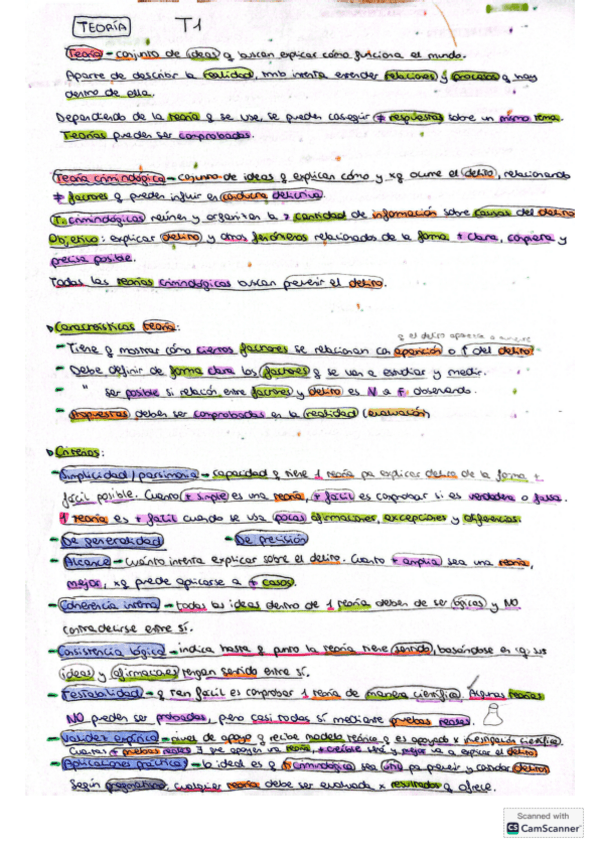 TEORÍA T1
Teoría - conjunto de ideas q buscan explicar cómo funciona el mundo.
Aparte de describir la realidad, tmb intenta entender relaciones y procesos q hay
dentro de ella.
Dependiendo de la teoría q se use, se pueden conseguir ≠ respuestas sobre un mismo tema.
Teorías pueden ser comprobadas.
Teoría criminológica - conjunto de ideas q explican cómo y xq ocurre el delito, relacionando
≠ factores q pueden influir en conducta delictiva.
T. criminológicas reúnen y organizan la > cantidad de información sobre causas del delito
Objetivo: explicar delito y otros fenómenos relacionados de la forma + clara, completa y
precisa posible.
Todas las teorías criminológicas buscan prevenir el delito.
Características teoría:
q el delito aparezca o aumente
- Tiene q mostrar cómo ciertos factores se relacionan con aparición o ↑ del delito
- Debe definir de forma clara los factores q se van a estudiar y medir.
- " ser posible si relación entre factores y delito es V o F observando.
- Propuestas deben ser comprobadas en la realidad (evaluación)
Criterios:
- Simplicidad / parsimonia - capacidad q tiene 1 teoría pa explicar delito de la forma +
fácil posible. Cuanto + simple es una teoría, + fácil es comprobar si es verdadera o falsa.
1 teoría es + fácil cuando se usa pocas afirmaciones, excepciones y diferencias.
- De generalidad - De precisión
- Alcance - Cuánto intenta explicar sobre el delito. Cuanto + amplia sea una teoría,
mejor, xq puede aplicarse a + casos.
- Coherencia interna - todas las ideas dentro de 1 teoría deben de ser lógicas y NO
contradecirse entre sí.
- Consistencia lógica - indica hasta q punto la teoría tiene sentido, basándose en q sus
ideas y afirmaciones tengan sentido entre sí.
- Testabilidad - q tan fácil es comprobar 1 teoría de manera científica. Algunas teorías
NO pueden ser probadas, pero casi todas sí mediante pruebas reales.
- Validez empírica - nivel de apoyo q recibe modelo teórico q es apoyado x investigación científica.
Cuantas + pruebas reales ∃ que apoyen una teoría, + creíble será y mejor va a explicar el delito
- Aplicaciones prácticas - lo ideal es q t. criminológica sea útil pa prevenir y controlar delitos
Según pragmatismo, cualquier teoría debe ser evaluada x resultados q ofrece.
Scanned with
CS CamScanner